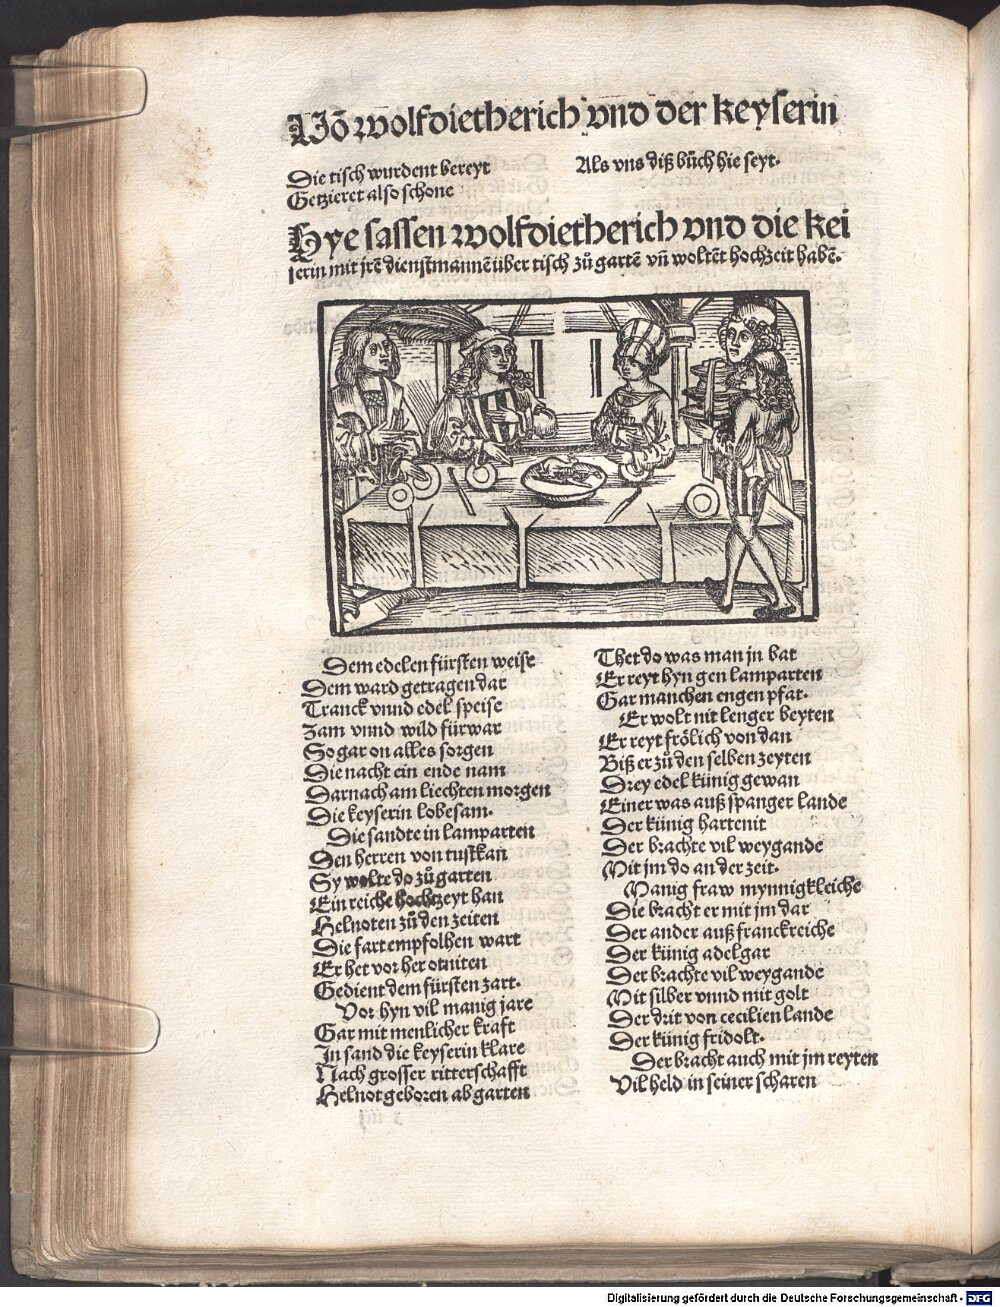 Uō wolfdietherich vnd der keyserin
Die tisch wurdent bereyt
Getzieret also schone
Als vns diß bůch hie seyt.
Hye sassen wolfdietherich vnd die kei
serin mit jrē dienstmannē über tisch zů gartē vñ woltēt hochzeit habē.
Dem edelen fürsten weise
Dem ward getragen dar
Tranck vnnd edel speise
Zam vnnd wild fürwar
So gar on alles sorgen
Die nacht ein ende nam
Darnach am liechten morgen
Die keyserin lobesam.
Die sandte in lamparten
Den herren von tuskan
Sy wolte do zů garten
Ein reiche hochtzeyt han
Helnoten zů den zeiten
Die fart empfolhen wart
Er het vor her otniten
Gedient dem fürsten zart.
Vor hyn vil manig jare
Gar mit menlicher kraft
In sand die keyserin klare
Nach grosser ritterschafft
Helnot geboren ab garten
Thet do was man jn bat
Er reyt hyn gen lamparten
Gar manchen engen pfat.
Er wolt nit lenger beyten
Er reyt frölich von dan
Biß er zů den selben zeyten
Drey edel künig gewan
Einer was auß spanger lande
Der künig hartenit
Der brachte vil weygande
Mit jm do an der zeit.
Manig fraw mynnigkleiche
Die bracht er mit jm dar
Der ander auß franckreiche
Der künig adelgar
Der brachte vil weygande
Mit silber vnnd mit golt
Der drit von cecilien lande
Der künig fridolt.
Der bracht auch mit jm reyten
Vil held in seiner scharen
Digitalisierung gefördert durch die Deutsche Forschungsgemeinschaft - DFG